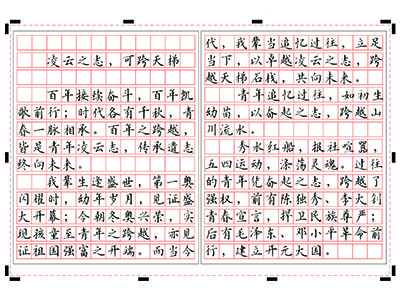 凌云之志，可跨天梯
百年接续奋斗，百年凯
歌前行；时代各有千秋，青
春一脉相承。百年之跨越，
皆是青年凌云志，传承遗志
终向未来。
我辈生逢盛世，第一奥
闪耀时，幼年岁月，见证盛
大开幕；今朝冬奥兴荣，实
现孩童至青年之跨越，亦见
证祖国强富之开端。而当今
代，我辈当追忆过往，立足
当下，以卓越凌云之志，跨
越天梯石栈，共向未来。
青年追忆过往，如初生
幼苗，以奋起之志，跨越山
川流水。
秀水红船，报社喧嚣，
五四运动，涤荡灵魂。过往
的青年凭奋起之志，跨越了
强权，前有陈独秀、李大钊
青春宣言，捍卫民族尊严；
后有毛泽东、邓小平革命前
行，建立开元大国。